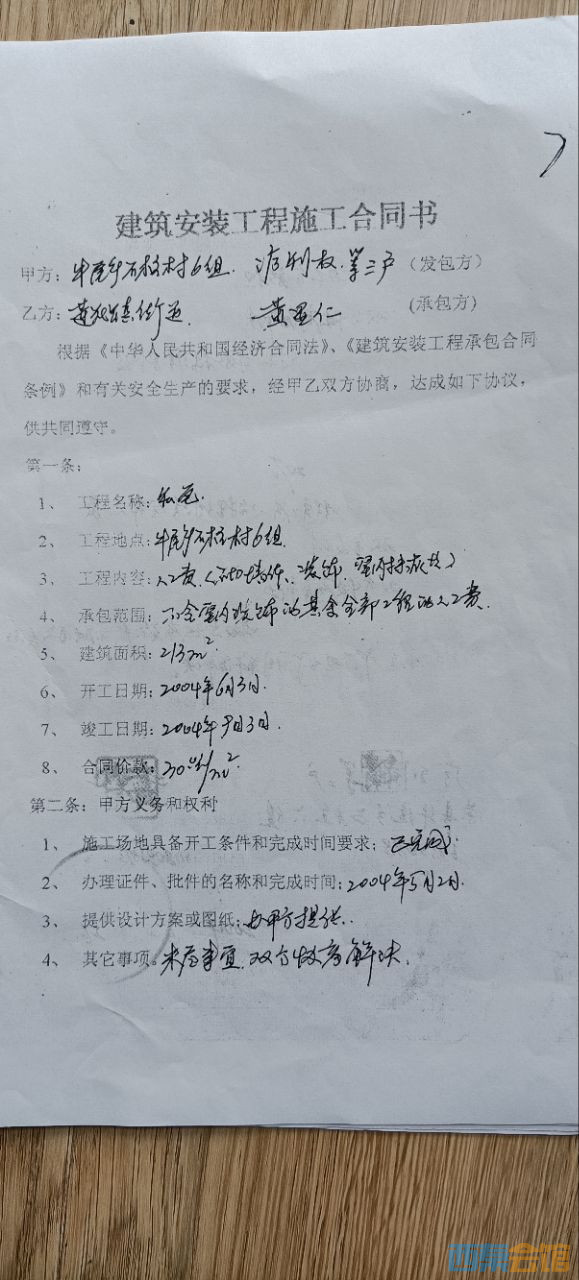 建筑安装工程施工合同书
甲方：牛尾乡石桂村6组. 利权.等三户（发包方）
乙方：街道. 黄星仁 （承包方）
根据《中华人民共和国经济合同法》、《建筑安装工程承包合同
条例》和有关安全生产的要求，经甲乙双方协商，达成如下协议，
供共同遵守。
第一条：
1、 工程名称：私宅.
2、 工程地点：牛尾乡石桂村6组.
3、 工程内容：人工费
4、 承包范围：不含室内装饰的其余全部工程的人工费.
5、 建筑面积：213m²
6、 开工日期：2004年6月3日.
7、 竣工日期：2004年9月3日.
8、 合同价款：30元/m²
第二条：甲方义务和权利
1、 施工场地具备开工条件和完成时间要求；已完成.
2、 办理证件、批件的名称和完成时间：2004年5月2日.
3、 提供设计方案或图纸：由甲方提供.
4、 其它事项。未尽事宜.双方协商解决.
西祠会馆